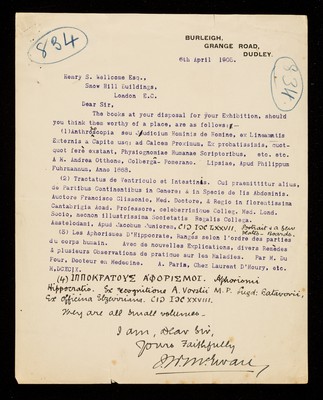 834
BURLEIGH,
GRANGE ROAD,
DUDLEY.
6th April 1905.
834
Henry S. Wellcome Esq.,
Snow Hill Buildings,
London E.C.
Dear Sir,
The books at your disposal for your Exhibition, should
you think them worthy of a place, are as follows:-
(1)Anthroscopia seu Judicium Hominis de Homine, ex Lineamatis
Externis a Capite usq: ad Calcem Proximum, Ex probatissimis, quot-
quot fere extant, Physiognomiae Humanae Scriptoribus, etc. etc.
A M. Andrea Otthone, Colberga- Pomerano. Lipsiae, Apud Philippum
Fuhrmannum, Anno 1668.
(2) Tractatus de Ventriculo et Intestinis. Cui praemittitur alius,
de Partibus Continentibus in Genere; & in Specie de iis Abdominis.
Auctore Francisco Glissonio, Med. Doctore, & Regio in florentissima
Cantabrigia Acad. Professore, celeberrimique Colleg. Med. Lond.
Socio, necnon illustrissimae Societatis Regalis Collega.
Amstelodami, Apud Jacobum Juniorem. CIƆ IƆC LXXVII.
(3) Les Aphorismes D'Hippocrate, Rangés selon l'ordre des parties
du corps humain. Avec de nouvelles Explications, divers Remedes
& plusieurs Observations de pratique sur les Maladies. Par M. Du
Four, Docteur en Medecine. A. Paris, Chez Laurent D'Houry, etc.
(4) ΙΠΠΟΚΡΑΤΟΥΣ ΑΦΟΡΙΣΜΟΙ. Aphorismi
Hippocratis. Ex recognitione A. Vorstii M.P. Lugd. Batavorum,
Ex officina Elzeviriana. CIƆ IƆC XXVIII.
They are all small volumes.
I am, Dear Sir,
Yours Faithfully